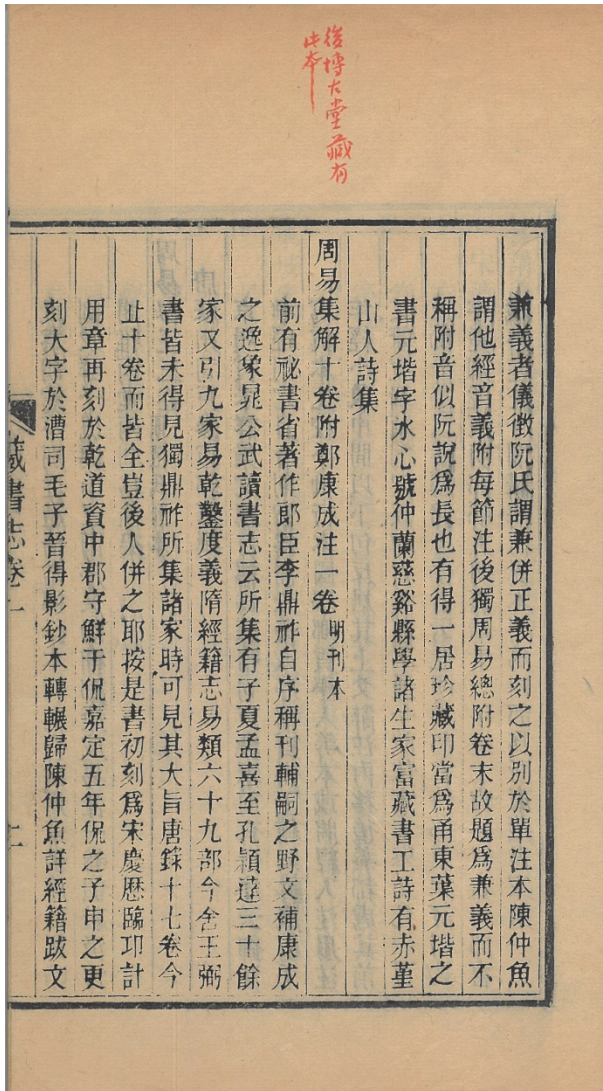 後博古堂藏有
此本
兼義者儀徵阮氏謂兼併正義而刻之以別於單注本陳仲魚
謂他經音義附每節注後獨周易總附卷末故題爲兼義而不
稱附音似阮說爲長也有得一居珍藏印當爲甬東葉元堦之
書元堦字水心號仲蘭慈谿縣學諸生家富藏書工詩有赤堇
山人詩集
周易集解十卷附鄭康成注一卷 明刊本
前有祕書省著作郎臣李鼎祚自序稱刊輔嗣之野文補康成
之逸象晁公武讀書志云所集有子夏孟喜至孔穎達三十餘
家又引九家易乾鑿度義隋經籍志易類六十九部今舍王弼
書皆未得見獨鼎祚所集諸家時可見其大旨唐錄十七卷今
止十卷而皆全豈後人併之耶按是書初刻爲宋慶歷臨邛計
用章再刻於乾道資中郡守鮮于侃嘉定五年侃之子申之更
刻大字於漕司毛子晉得影鈔本轉輾歸陳仲魚詳經籍跋文
藏書志卷一
二